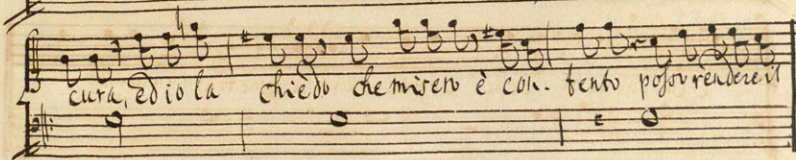 cura, ed io la chiedo che misero è con. tento posso rendere il